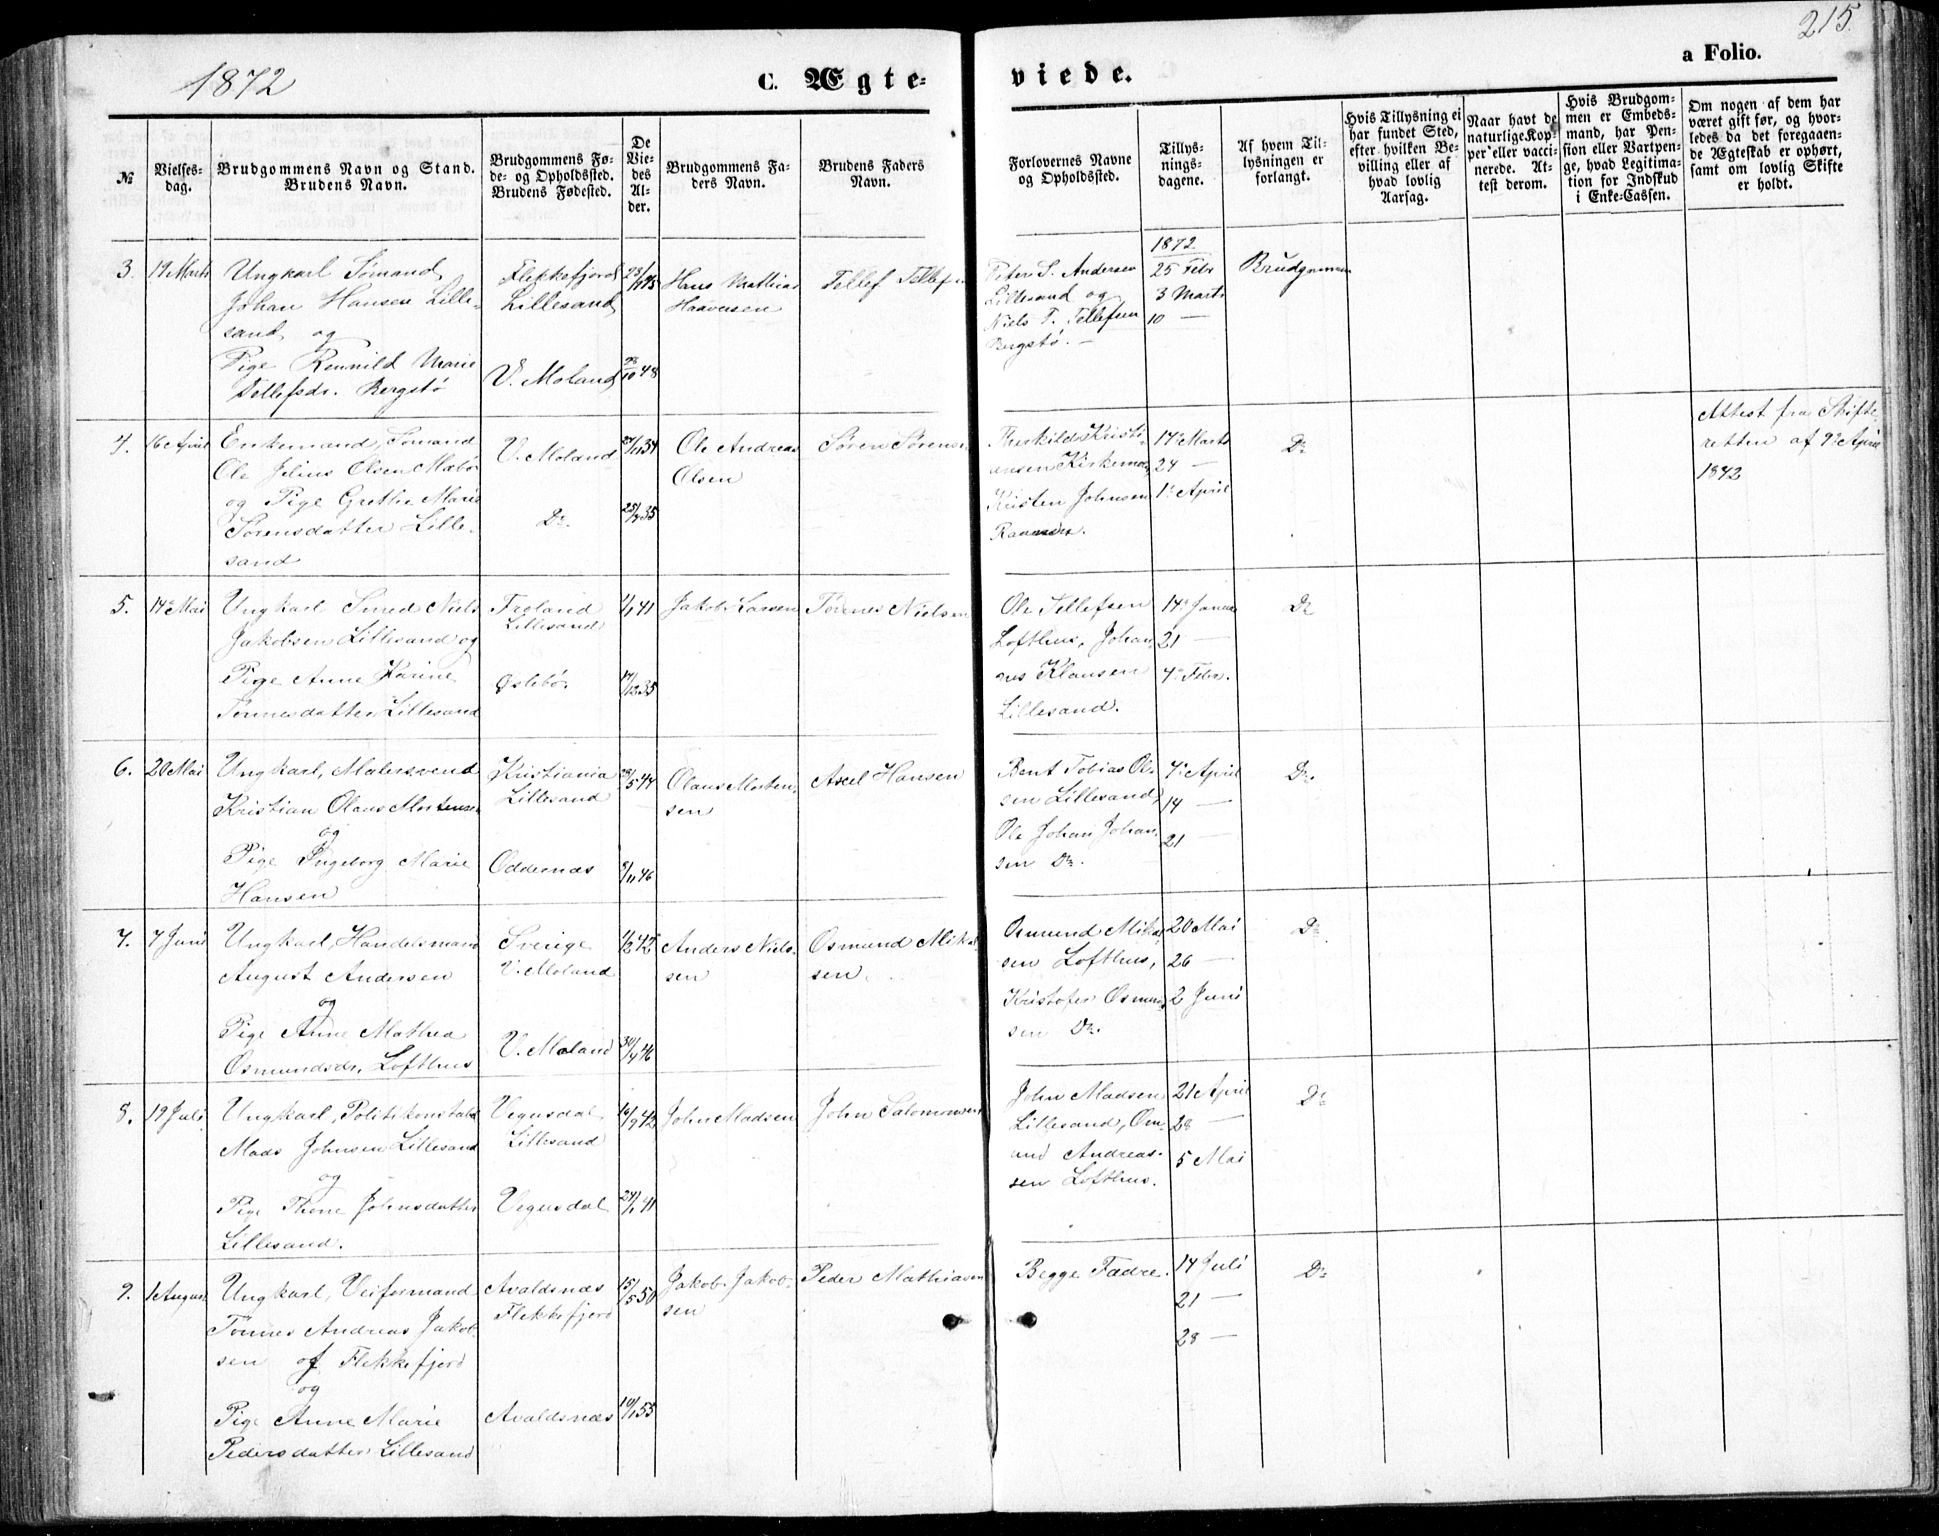 215.
1872
C. Ægteviede.
a Folio.
№
Vielsesdag.
Brudgommens Navn og Stand. Brudens Navn.
BrudgommensFøde- og Opholdssted. Brudens Fødested.
De Viedes Alder.
Brudgommens Faders Navn.
Brudens Faders Navn.
Forlovernes Navne og Opholdssted.
Tillysningsdagene.
Af hvem Tillysningen er forlangt.
Hvis Tillysning ei har fundet Sted, efter hvilken Bevilling eller af hvad lovlig Aarsag.
Naar havt de naturlige Kopper eller vaccinerede. Attest derom.
Hvis Brudgommen er Embedsmand, har Pension eller Vartpenge, hvad Legitimation for Indskud i Enke-Cassen.
Om nogen af dem har været gift før, og hvorledes da det foregaaende Ægteskab er ophørt, samt om lovlig Skifte er holdt.
3. 19 Marts
Ungkarl Sømand
Johan Hansen Lille-
sand og
Pige Ronnild Marie
Tellefsdr. Bergstø
Flekkefjord
Lillesand
V. Moland
28/10 48
Hans Mathias
Haaversen
Tellef Tellefsen
Peter S. Andersen
Lillesand og
Niels T. Tellefsen
Bergstø. —
1872
25 Febr
3 Marts
10 —
Brudgommen
4. 16 April
Enkemand, Sømand
Ole Julius Olsen Mæbø
og Pige Grethe Marie
Sørensdatter Lille-
sand
V. Moland
Do
24/11 34
25/4 35
Ole Andreas
Olsen
Søren Sørensen
Therkild Kristi-
ansen Kirkemo,
Kristen Johnsen
17 Marts
24 —
1 April
Do
Attest fra Skifte
retten af 9 April
1872
5. 14 Mai
Ungkarl Smed Niels
Jakobsen Lillesand og
Pige Anne Karine
Tønnesdatter Lillesand
Froland
Lillesand
Øslebø.
1/1 41
17/12 35
Jakob Larsen
Tønnes Nielsen
Ole Tellefsen
Lofthus, Johan-
nes Klausen
Lillesand.
14 Januar
21 —
4 Febr.
Do
6. 20 Mai
Ungkarl, Malersvend
Kristian Olaus Mortensen
og
Pige Ingeborg Marie
Hansen
Kristiania
Lillesand
Oddernæs
28/5 44
5/11 46
Olaus Morten-
sen
Axel Hansen
Bent Tobias Ol-
sen Lillesand,
Ole Johan Johan-
sen Do.
7 April
14 —
21 —
Do.
7. 7 Juni
Ungkarl, Handelsmand
August Andersen
og
Pige Anne Mathea
Osmundsdr, Lofthus
Sverige
V. Moland
V. Moland
1/2 42
30/4 46
Anders Niel-
sen
Osmund Mikal-
sen.
Osmund Mikal-
sen Lofthus,
Kristofer Osmund-
sen Do.
20 Mai
26 —
2 Juni
Do
8. 19 Juli,
Ungkarl, Politikonstabel
Mads Johnsen Lillesand
og
Pige Thone Johnsdatter
Lillesand.
Vegusdal
Lillesand
Vegusdal
16/9 42
24/1 41
John Madsen
John Salomonsen
John Madsen
Lillesand, Om-
und Andreas-
sen Lofthus.
21 April
28 —
5 Mai
Do
9. 1 August
Ungkarl, Veiformand
Tønnes Andreas Jakob-
sen af Flekkefjord
og
Pige Anne Marie
Pedersdatter Lillesand
Avaldsnæs
Flekkefjord
Avaldsnæs
15/5 50
10/1 55
Jakob Jakob-
sen
Peder Mathiasen
Begge Fædre.
14 Juli
21 —
28 —
Do